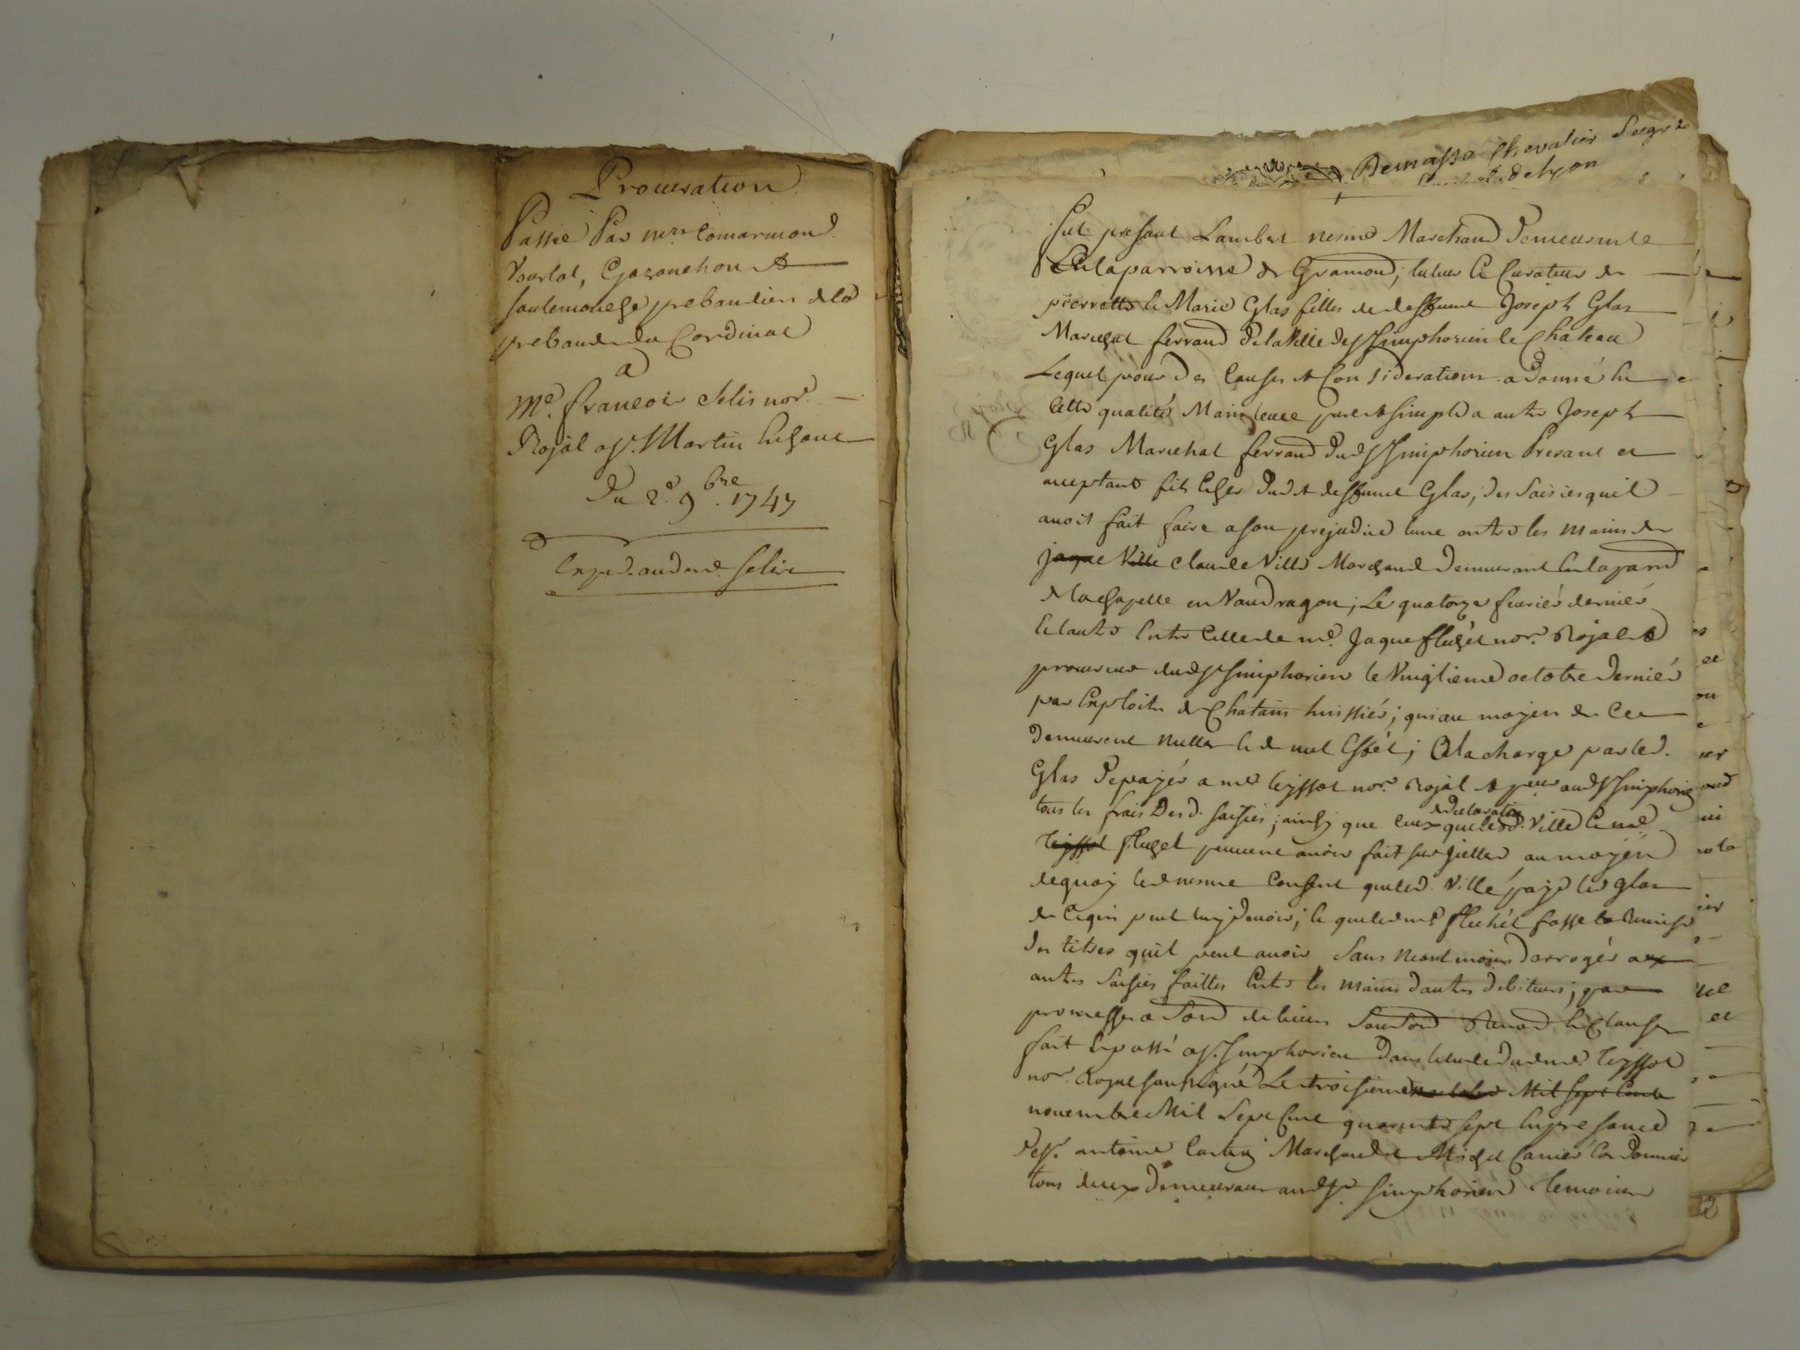 Procuration
Passée Par mrs Comarmond
Vourlat, Gazanchon &
prebandiers dela
prebande du Cordinal
a
Me. françois Selis nore.
Royal a St. Martin
Du 2e. 9bre. 1747
Exped. audt. me. Selis
Demasso Chevalier Seigr
de Lyon
fut presant Lambert nesme Marchand Demeurant
En la parroisse de Gramond, tuteur et Curateur de
pierrette et Marie Glas filles de deffunt Joseph Glas
Marechal ferrand de la Ville de St Simphorien le Chateau
Lequel pour des Causes & Considerations a Donné en
Cette qualité Mainlevée pure & simple a autre Joseph
Glas Marechal ferrand dud St Simphorien Presant et
acceptant fils dud & deffunt Glas, des Saisies quil
avoit fait faire a son prejudice l'une entre les mains de
jaque Ville Claude Ville Marchand demeurant en la parre
de la Chapelle en Vaudragon, Le quatorze fevrier dernier
et l'autre Entre Celle de me. Jaque fluchet nore. Royal &
procureur dud St Simphorien le Vingtieme octobre Dernier
par Exploits de Chatain huissier; qui au moyen de Ce
demeurent nulles et de nul Effét; a la charge par led.
Glas De payér a me teyssot nore. Royal & pcur aud St Simphorien
tous les frais Desd. Saisies, ainsy que Ceux de declaration que lesd. Ville et me
teyssot fluchet peuvent avoir fait Surgieller au moyen
dequoy led nesme Consent que led. Ville paye led Glas
de Ce qui peut luy devoir, et que led me fluchét fasse la Remise
des titres quil peut avoir Sans neantmoins derrogér aux
autres Saisies faittes Entre les mains d'autres debiteurs; par
promesses
fait et passé a St. Simphorien dans l'etude dud me. teyssot
nore. Royal Soussigné Le troisieme octobre Mil Sept Cents
novembre Mil Sept Cent quarante Sept En presance
de Sr. antoine Marchand & Michel Carrier Cordonnier
tous deux demeurant aud St Simphorien temoins